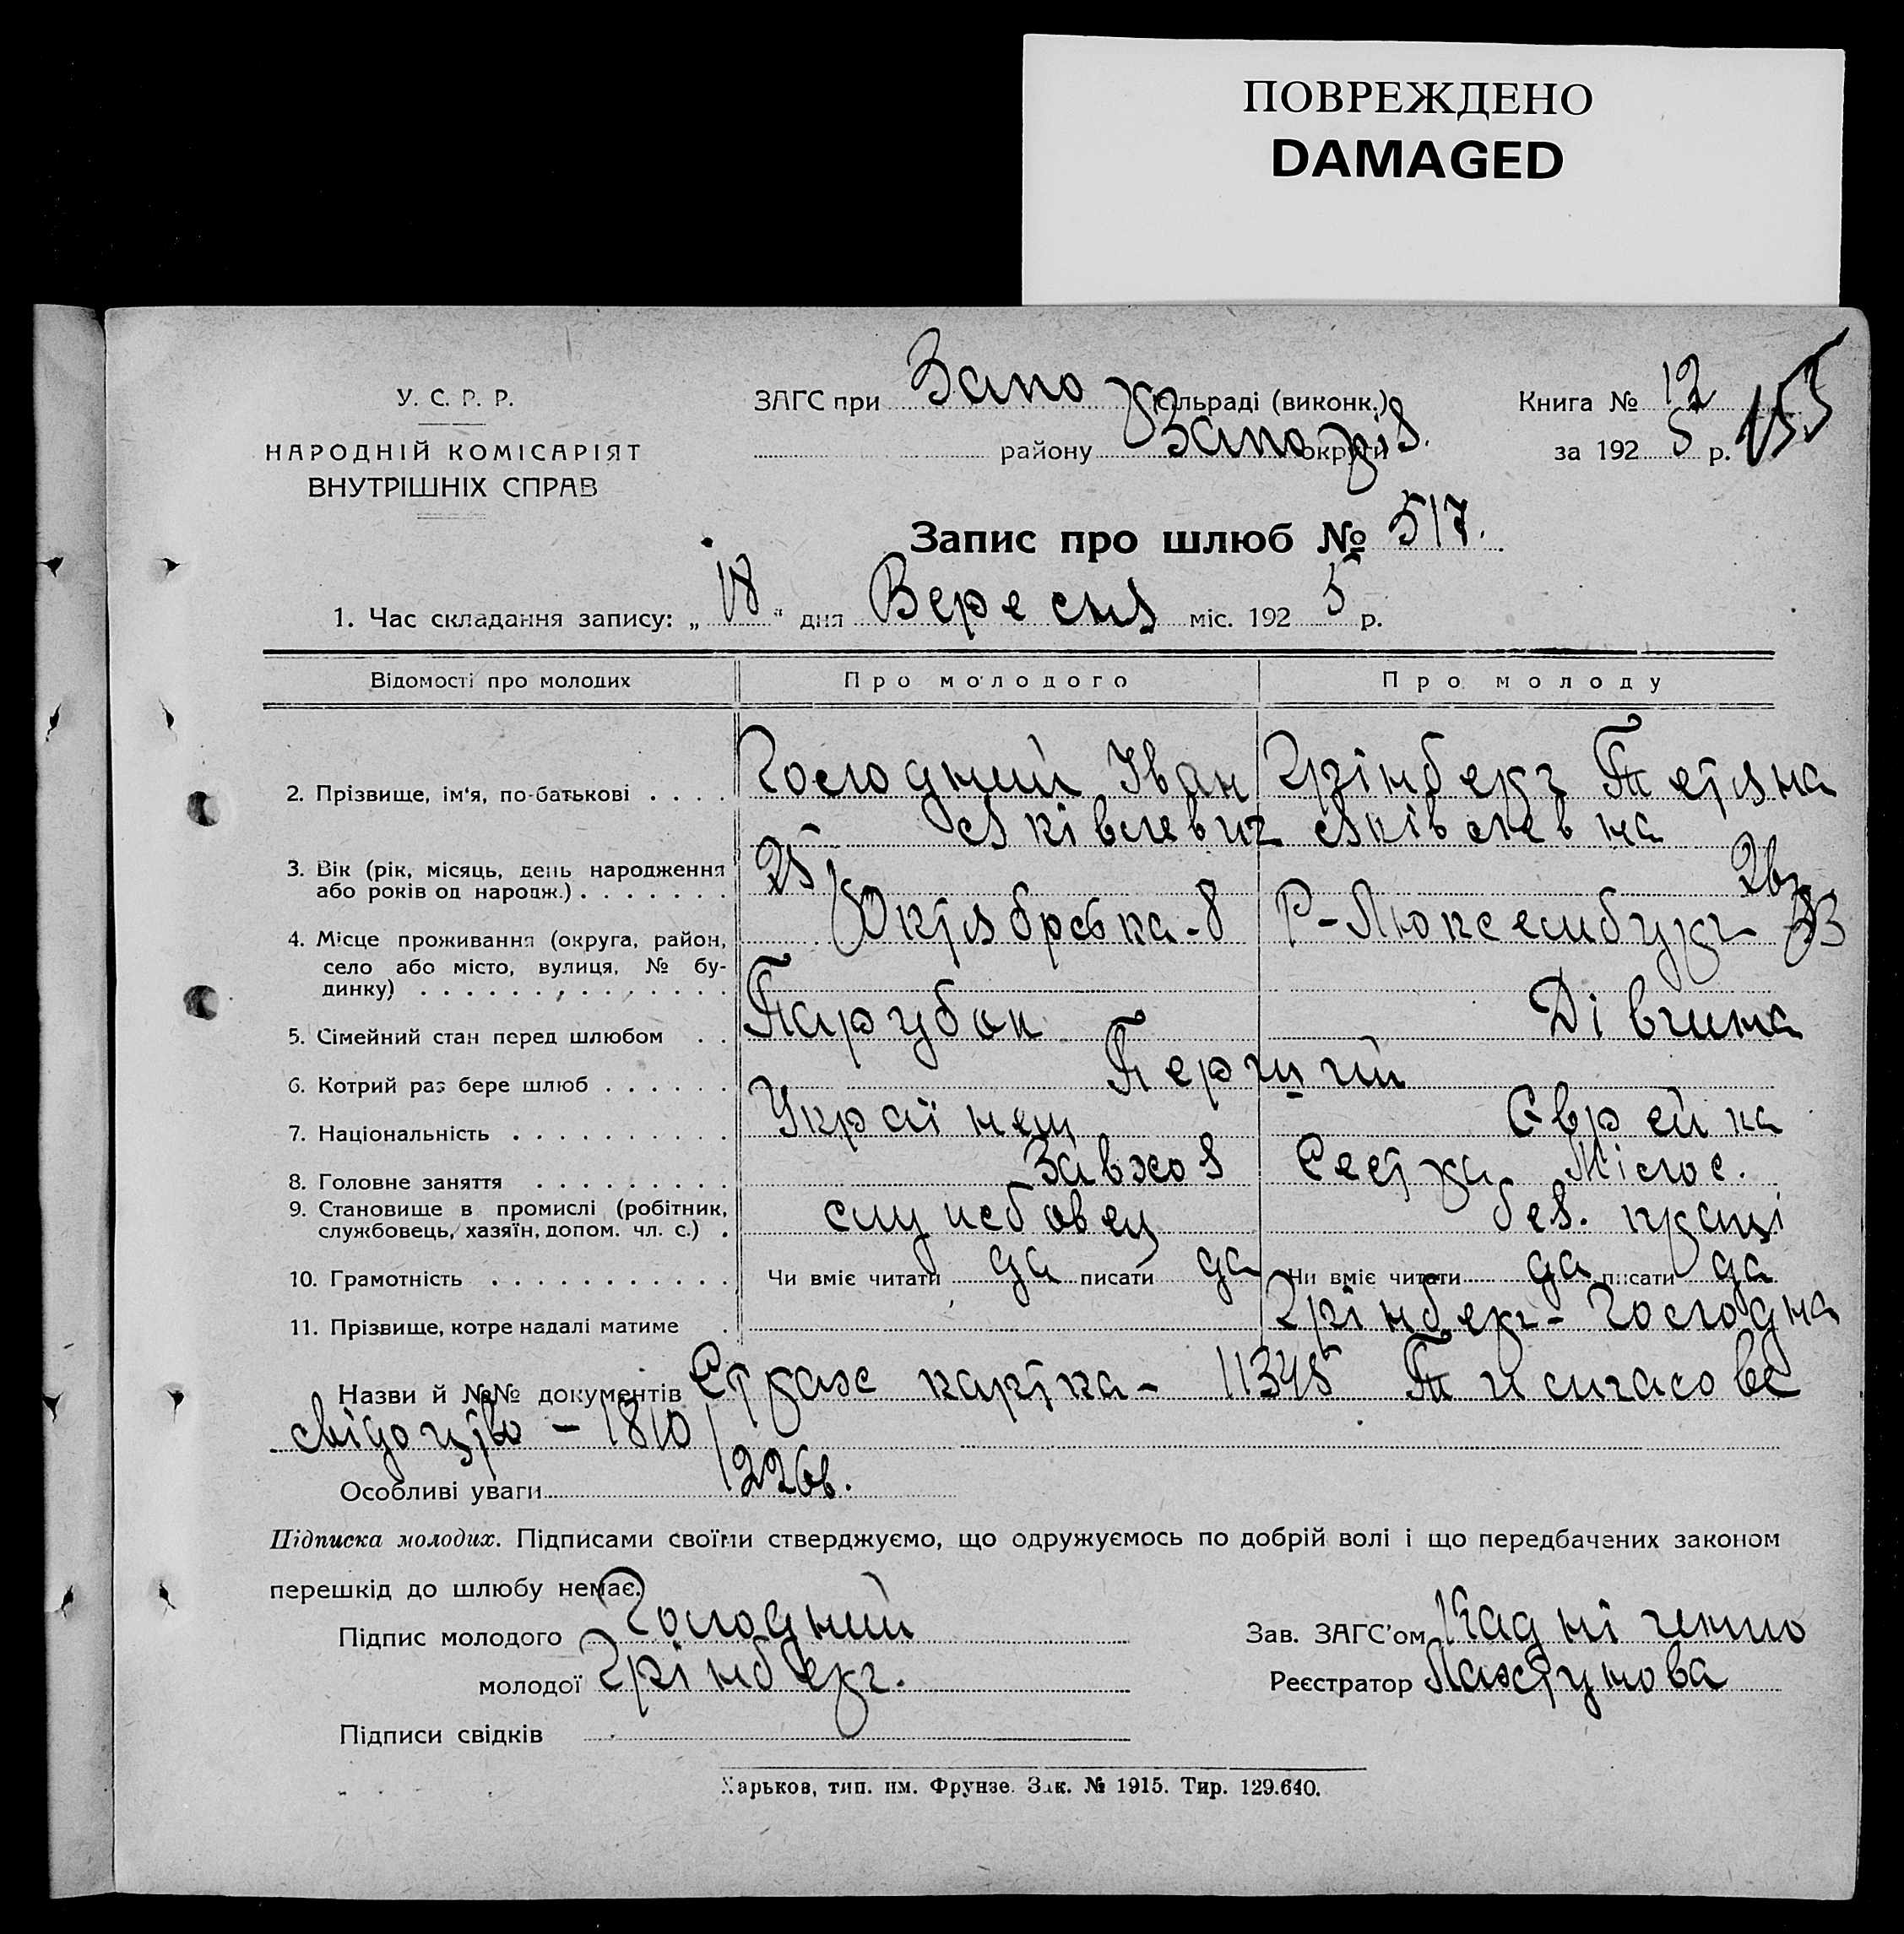 ПОВРЕЖДЕНО
DAMAGED
У. С. Р. Р.
НАРОДНІЙ КОМІСАРІЯТ
ВНУТРІШНІХ СПРАВ
ЗАГС при Запо сільраді (виконк.)
району Запоріз. округи
Книга № 12
153
за 192 5 р.
Запис про шлюб № 517.
1. Час складання запису: „ 18 “ дня Вересня міс. 192 5 р.
Відомості про молодих Про молодого Про молоду
2. Прізвище, ім'я, по-батькові . . . . Голодний Іван Грінберг Тетяна
Яківлевич Яківлевна
3. Вік (рік, місяць, день народження
або років од народж.) . . . . . . . 25 26
4. Місце проживання (округа, район, Октябрська-8 Р-Люксембург 33
село або місто, вулиця, № бу-
динку) . . . . . . . . . . . . . .
5. Сімейний стан перед шлюбом . . Парубок Дівчина
6. Котрий раз бере шлюб . . . . . . Перший
7. Національність . . . . . . . . . . Українец Єврейка
8. Головне заняття . . . . . . . . . Завхоз Сестра Мілос.
9. Становище в промислі (робітник,
службовець, хазяїн, допом. чл. с.) . службовец без. праці
10. Грамотність . . . . . . . . . . . Чи вміє читати да писати да Чи вміє читати да писати да
11. Прізвище, котре надалі матиме . Грінберг-Голодна
Назви й №№ документів Страх картка - 11345 Тимчасове
свідоцтво - 1810
Особливі уваги 1226
Підписка молодих. Підписами своїми стверджуємо, що одружуємось по добрій волі і що передбачених законом
перешкід до шлюбу немає.
Підпис молодого Голодний
Зав. ЗАГС'ом
молодої Грінберг.
Реєстратор Лахтунова
Підписи свідків
Харьков, тип. им. Фрунзе. Зак. № 1915. Тир. 129.640.